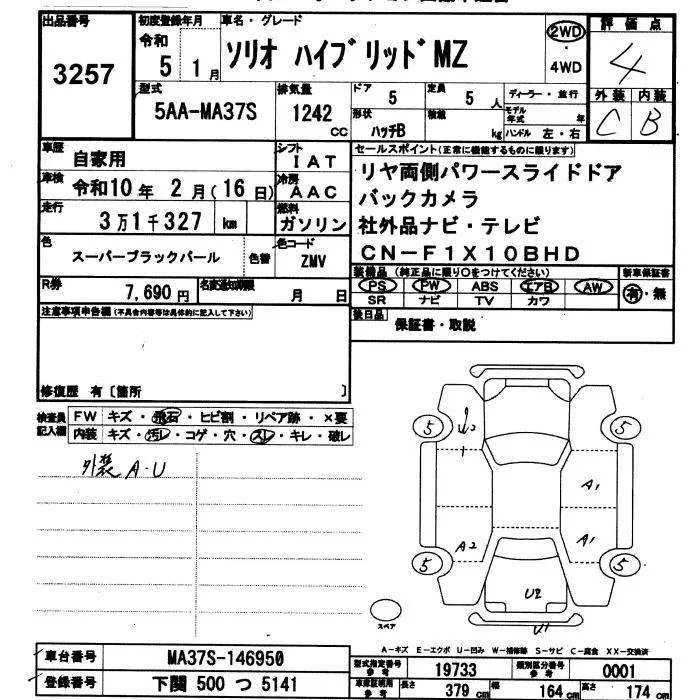 出品番号
3257
初度登録年月
令和
5 1月
車名・グレード
ソリオ ハイブリッドMZ
2WD
4WD
評価点
4
外装 内装
C B
型式
5AA-MA37S
排気量
1242
CC
ドア
5
定員
5 人
形状
ハッチB
積載
kg
ディーラー・並行
モデル年式 年
ハンドル 左・右
車歴
自家用
シフト
IAT
車検
令和10年 2月(16日)
冷房
AAC
走行
3万1千327 km
燃料
ガソリン
セールスポイント(正常に機能するものに限ります)
リヤ両側パワースライドドア
バックカメラ
社外品ナビ・テレビ
CN-F1X10BHD
色
スーパーブラックパール
色替
色コード
ZMV
装備品 (純正品に限り○をつけてください)
PS PW ABS エアB AW
SR ナビ TV カワ
新車保証書
有・無
R券
7,690円
名変通知期限
月 日
後日品
保証書・取説
注意事項申告欄(不具合内容等は具体的に記入して下さい)
修復歴 有〔箇所 〕
検査員記入欄
FW キズ・飛石・ヒビ割・リペア跡・×要
内装 キズ・汚レ・コゲ・穴・スレ・キレ・破レ
外装 A・U
5
5
A1
A2
A1
5
5
U2
U1
スペア
A-キズ E-エクボ U-凹み W-補修跡 S-サビ C-腐食 XX-交換済
車台番号
MA37S-146950
登録番号
下関 500 つ 5141
型式指定番号
参考
19733
類別区分番号
参考
0001
車庫証明用
参考
長さ
379 cm
幅
164 cm
高さ
174 cm